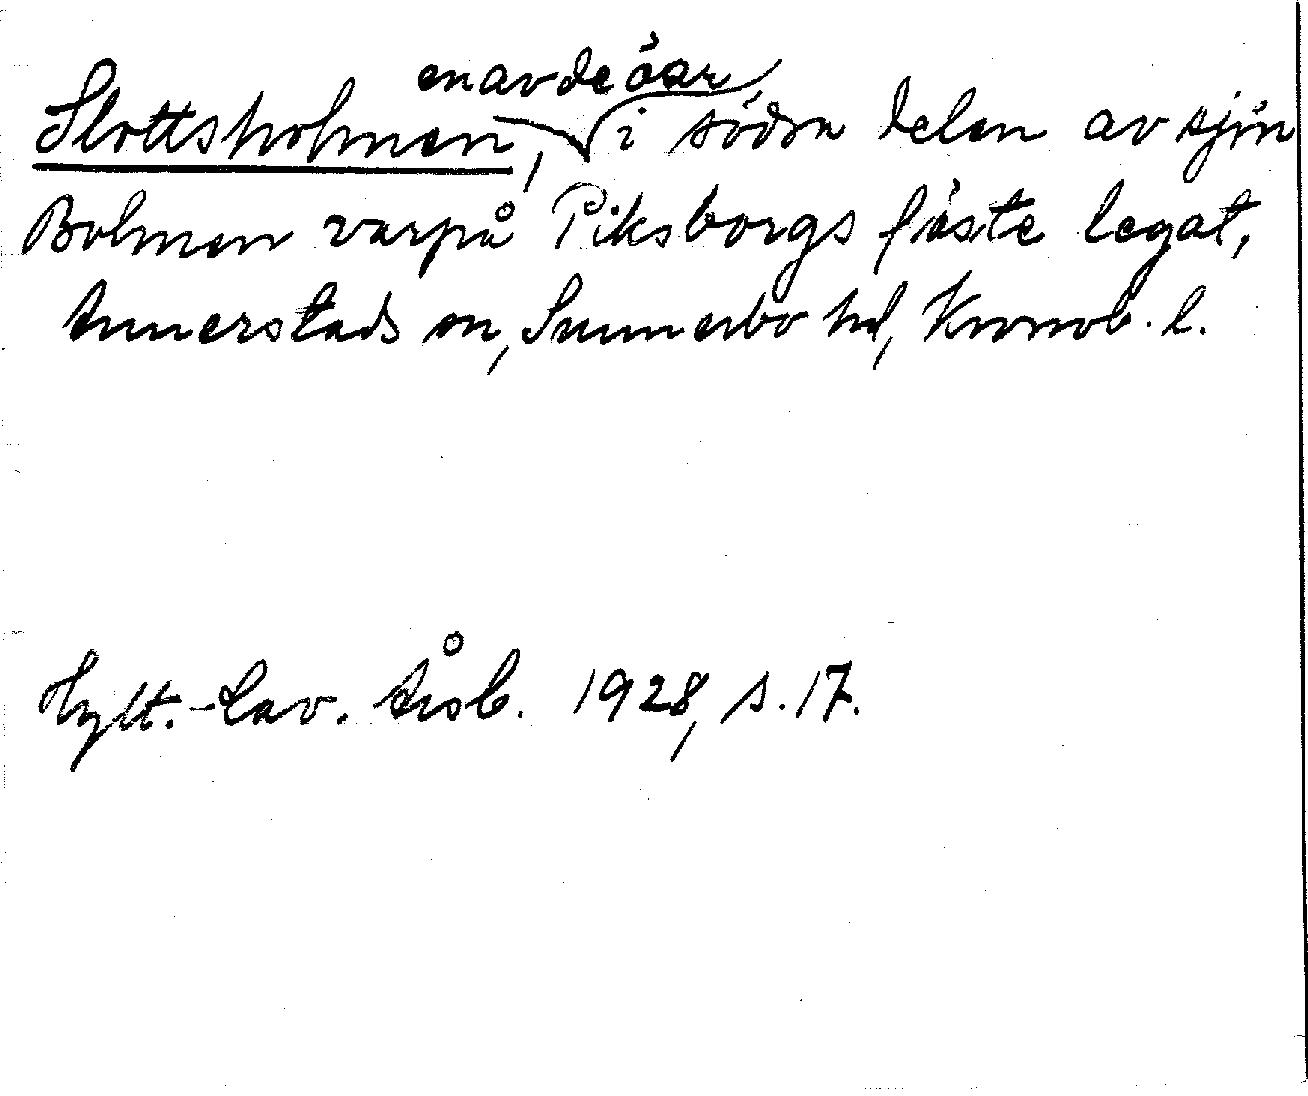 en av de öar,
Slottsholmen, i södra delen av sjön
Bolmen varpå Piksborgs fäste legat,
Annerstads sn, Sunnerbo hd, Kronob. l.
Hylt.-Cav. Årsb. 1928, s. 17.